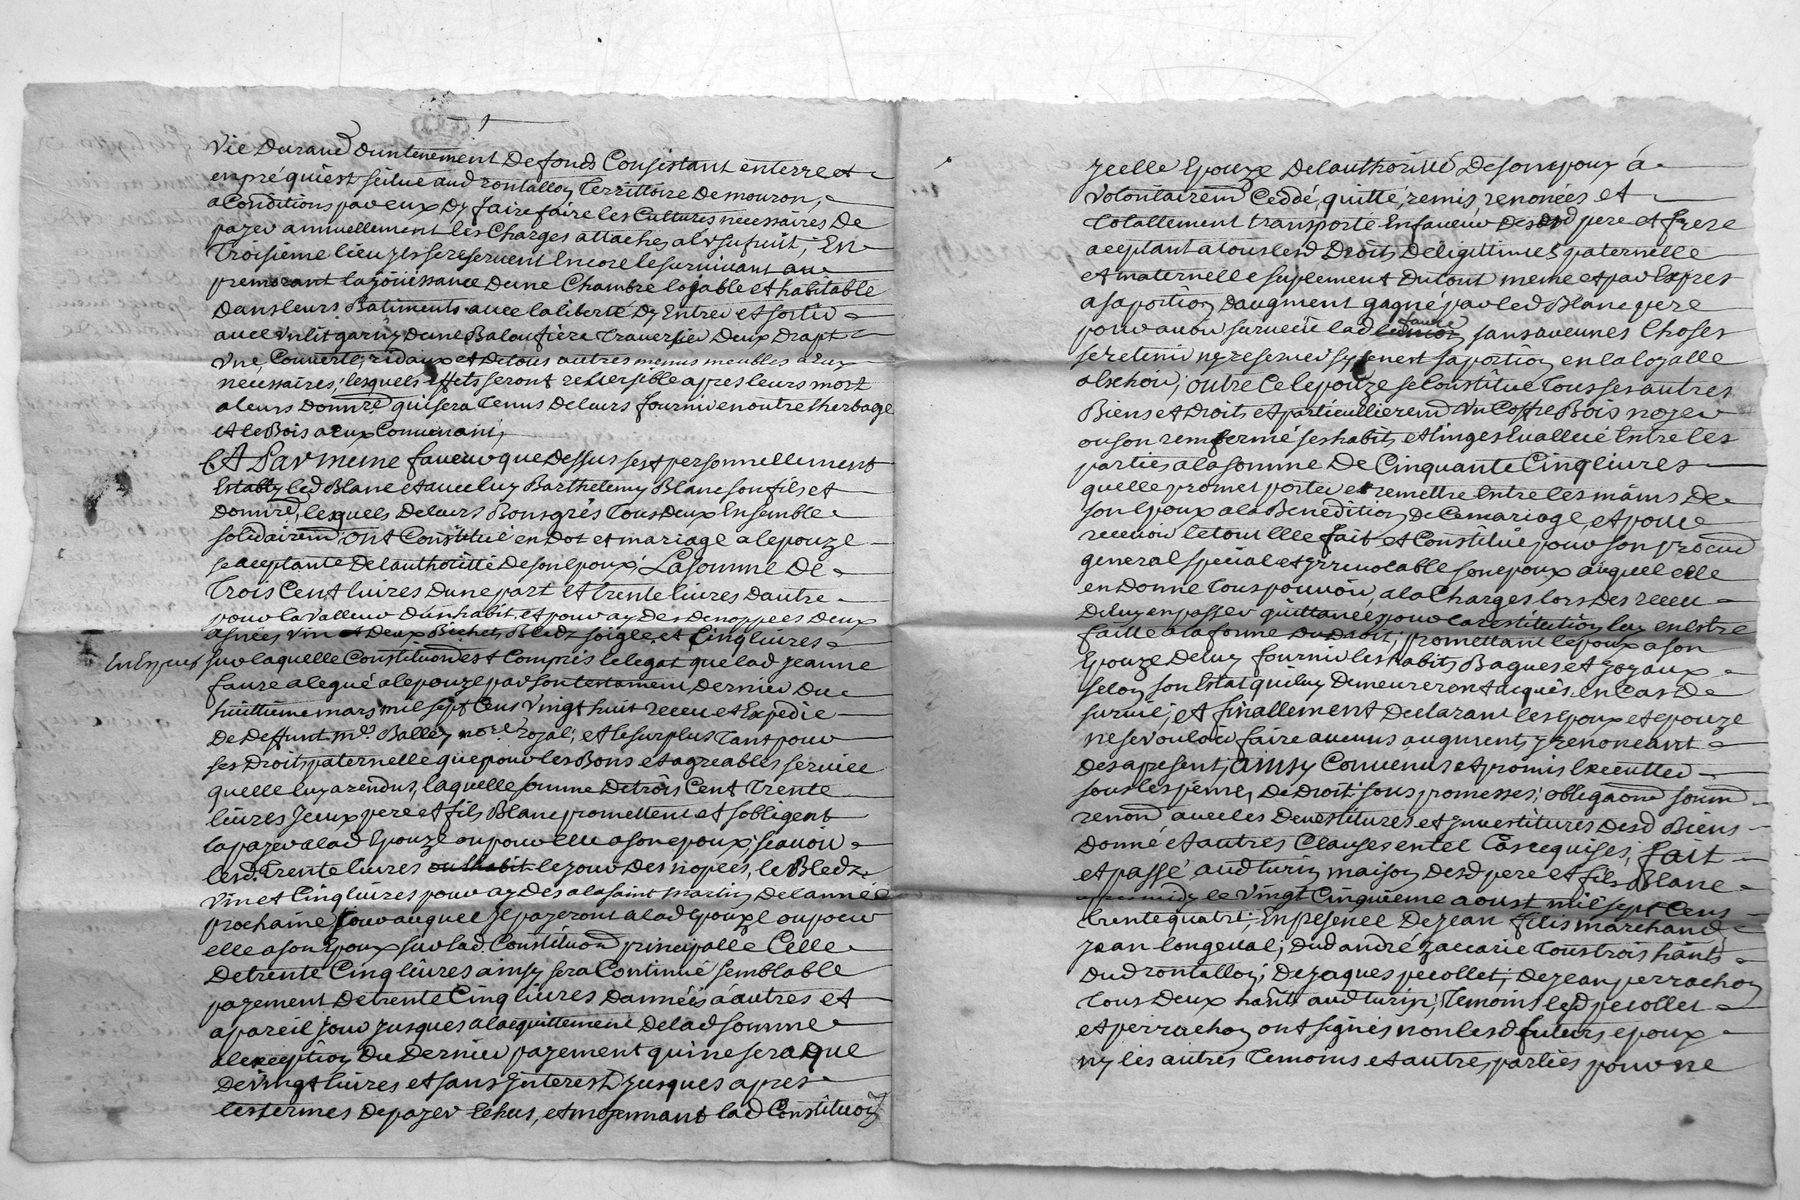 vie durand dun tenement de fonds Consistant en terre et
en pré qui est scitue aud rontallon Territtoire de mouron,
a Conditions par eux dy faire faire les Cultures necessaires De
payer annuellement les Charges attachés alusufruit; En
Troisieme lieu jls se reservent Encore le survivant au
premourant la jouissance dune Chambre logable et habitable
dans leurs Batiments avec la liberté dy Entrer et sortir
avec un lit garny dune Baloufiere Traversier Deux Drapt
une Couverte, ridaux et de tous autres menus meubles a eux
necessaires, lesquels effets seront reversible apres leurs mort
a leurs donnre. qui sera tenus de leurs fournir en outre lherbage
et le Bois a eux Convenant,
Et Par meme faveur que dessus sest personnellement
Estably led Blanc et avec luy Barthelemy Blanc son fils et
donnre, lesquels de leurs Bons grés Tous deux Ensemble
solidairemt ont Constitué en Dot et mariage a lepouze
se aceptante de lauthoritté de son Epoux La somme De
Trois Cent livres dune part et trente livres dautre
pour la valleur dun habit, et pour aydes de noppces deux
asnées vin et deux Bichets Bledz soigle et Cinq livres
En Espece sur laquelle Constitution est Compris le legat que lad jeanne
faure a legué a lepouze par son testament dernier du
huittieme mars mil sept Cens vingt huit receu et Expedié
de deffunt me. Balley nore royal; et le surplus tant pour
ses droits paternelle que pour les Bons et agreables service
quelle luy a rendus, laquelle somme de trois Cent Trente
livres jceux pere et fils Blanc promettent et sobligent
la payer a lad Epouze ou pour elle a son epoux, scavoir
lesd. trente livres ou lhabit le jour des nopces, le Bledz
vin et Cinq livres pour aydes a la saint martin de lanneé
prochaine jour auquel jl payeront a lad Epouze ou pour
elle a son Epoux sur lad. Constituon principalle Celle
de trente Cinq livres ainsy sera Continué semblable
payement de trente Cinq livres dannées a autres et
a pareil jour jusques a lacquittement de lad somme
a lexception du dernier payement qui ne sera que
de vingt livres et sans jnterest jusques apres
les termes de payer Echus, et moyennant lad Constituon
jcelle Epouze de lauthoritté de son epoux a
volontairemt Ceddé, quitté, remis, renoncés et
totallement transporté En faveur desd pere et frere
aceptant a tous lesd Droits de ligittimes paternelle
et maternelle suplement du tout meme et par Expres
a sa portion daugment gagné par led Blanc pere
pour avoir survecu lad faure sans aucunes Choses
se retenir ny reserver sy cenest sa portion en la loyalle
alschoir; outre Ce lepouze se Constitue Tous ses autres
Biens et Droits et particullieremt Un Coffre Bois noyer
ou son remfermé ses habits et linges Evallué Entre les
parties a la somme De Cinquante Cinq livres
quelle promet porter et remettre Entre les mains de
son Epoux a la Benediction de Ce mariage, et pour
recevoir le tout Elle fait et Constitue pour son procur
general special et jrrevocable son epoux auquel elle
en donne tous pouvoir, a la Charges lors des receu
de luy en passer quittances pour la restitution luy en Estre
faitte a la forme du Droit; promettant lepoux a son
Epouze de luy fournir les habits Bagues et joyaux
selon son Estat qui luy demeureront acquis en Cas de
survie; et finallement declarant les Epoux et epouze
ne se vouloir faire aucuns augments y renoncant
des apresent, ainsy Convenus et promis Executter
sous les peine, De Droit sous promesses, obligaons soumn
renond avec les devestitures et jnvestitures desd Biens
donné et autres Clauses en tel Cas requises; fait
et passé aud turin maison desd pere et fils Blanc
apres midy le vingt Cinquieme aoust mil sept Cens
trente quatre; En presence de jean filis marchand
jean longeval; dud andre zaccarie tous trois hants
dud rontallon; de jaques pecollet; de jean perrachon
Tous deux hants aud turin; temoins led pecollet
et perrachon ont signés non lesd futurs epoux
ny les autres temoins et autres parties pour ne